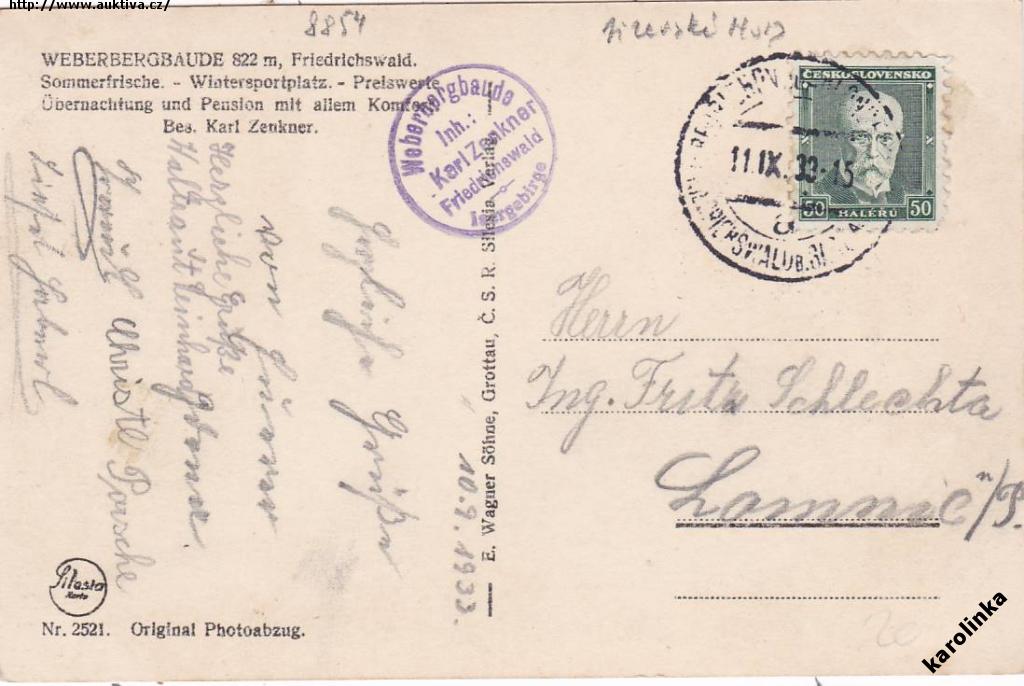 http://www.auktiva.cz/
8854
WEBERBERGBAUDE 822 m, Friedrichswald.
Sommerfrische. - Wintersportplatz. - Preiswerte
Übernachtung und Pension mit allem Komfort.
Bes. Karl Zenkner.
Weberbergbaude
Inh.:
Karl Zenkner
Friedrichswald
Isergebirge
ČESKOSLOVENSKO
50 HALÉŘŮ 50
11.IX.33-15
Herzliche Grüße
Christl Porsche
von
Herzliche Grüße
10.9.1933.
E. Wagner Söhne, Grottau, Č. S. R. Silesia Verlag
Herrn
Ing. Fritz Schlechta
Lomnic n/P.
Silesia
Karte
Nr. 2521. Original Photoabzug.
karolinka